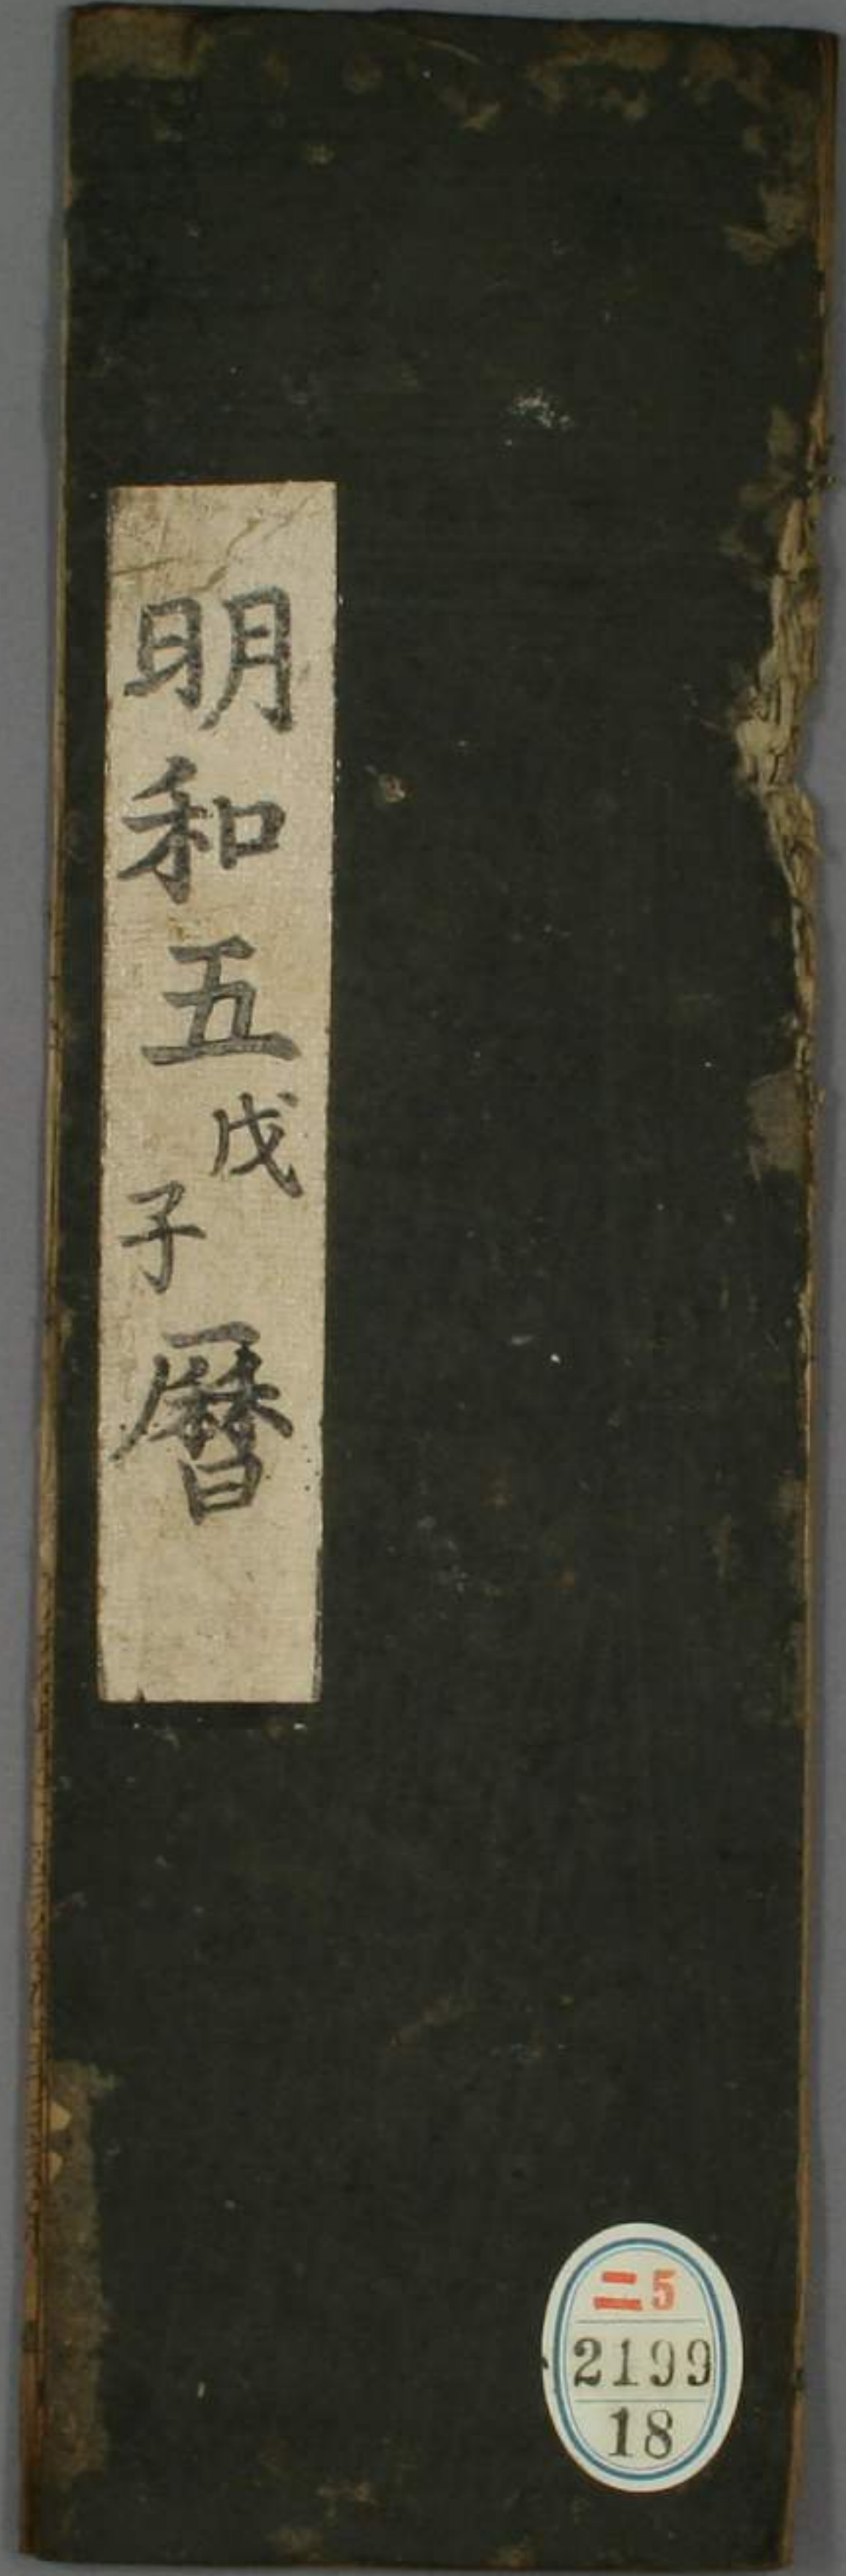 明和五戊子暦
ニ5
2199
18